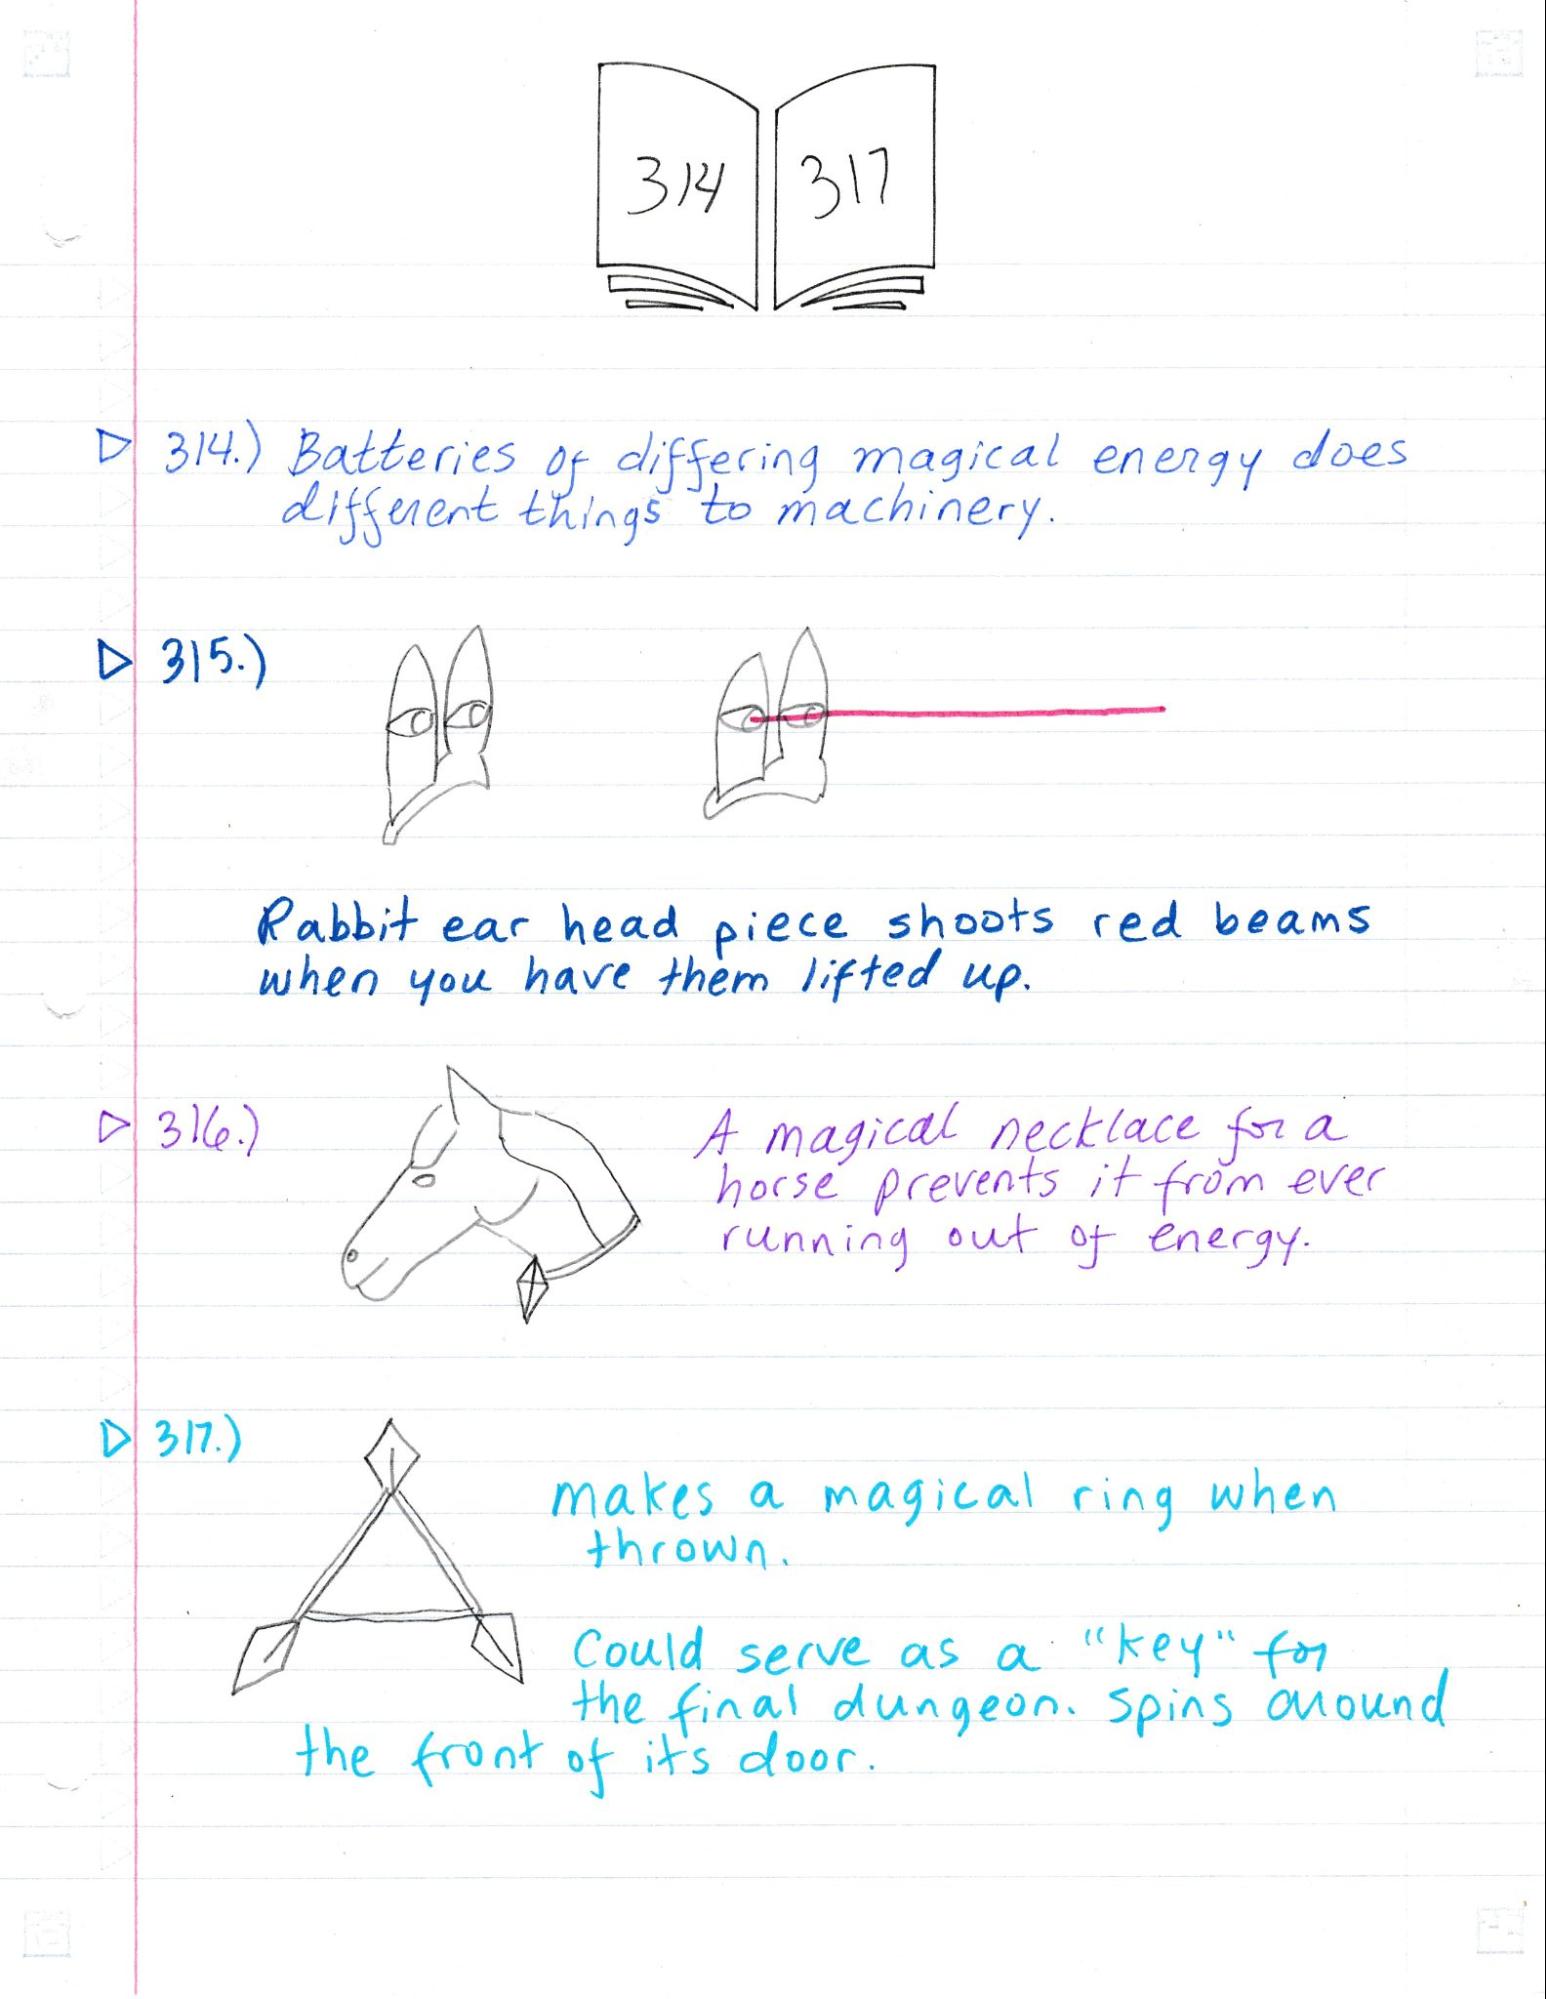 314 317
▷ 314.) Batteries of differing magical energy does
different things to machinery.
▷ 315.)
Rabbit ear head piece shoots red beams
when you have them lifted up.
▷ 316.)
A magical necklace for a
horse prevents it from ever
running out of energy.
▷ 317.)
makes a magical ring when
thrown.
Could serve as a "key" for
the final dungeon. Spins around
the front of its door.